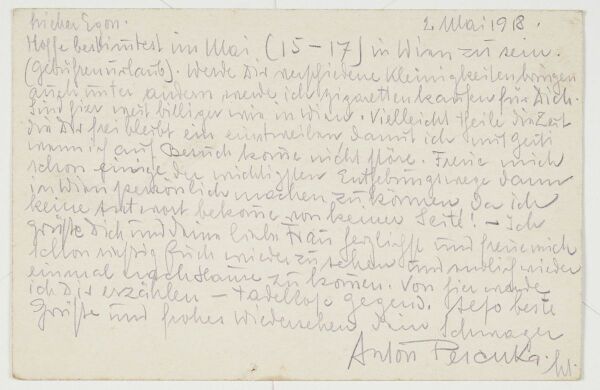 Lieber Egon. 2. Mai 1918.
Hoffe bestimmtest im Mai (15–17) in Wien zu sein.
(Gebührenurlaub). Werde Dir verschiedene Kleinigkeiten bringen
auch unter andern werde ich Zigaretten kaufen für Dich.
Sind hier weit billiger wie in Wien. Vielleicht theile die Zeit
die Dir frei bleibt ein damit ich
wenn ich auf Besuch komme nicht störe. Freue mich
schon einige der wichtigsten Enthebungswege dann
in Wien persönlich machen zu können. Da ich
keine Antwort bekomme von keiner Seite! – Ich
grüße Dich und Deine liebe Frau herzlichst und freue mich
schon riesig Euch wieder zu sehen und endlich wieder
einmal nachhause zu kommen. Von hier werde
ich Dir erzählen – tadellose Gegend. Also beste
Grüße und frohes Wiedersehen Dein Schwager
Anton Peschka.